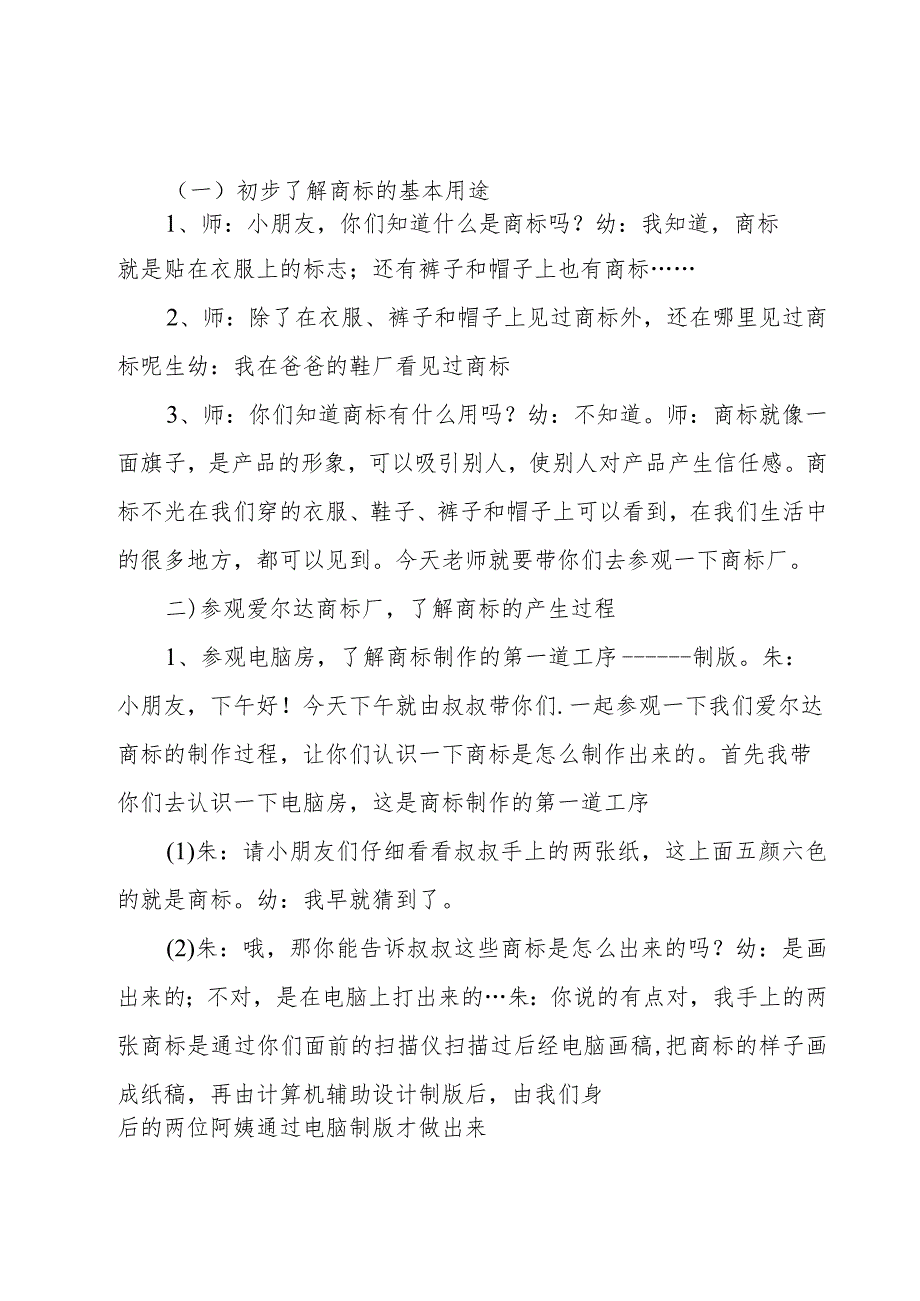 （一）初步了解商标的基本用途
1、师：小朋友，你们知道什么是商标吗？幼：我知道，商标
就是贴在衣服上的标志；还有裤子和帽子上也有商标……
2、师：除了在衣服、裤子和帽子上见过商标外，还在哪里见过商
标呢生幼：我在爸爸的鞋厂看见过商标
3、师：你们知道商标有什么用吗？幼：不知道。师：商标就像一
面旗子，是产品的形象，可以吸引别人，使别人对产品产生信任感。商
标不光在我们穿的衣服、鞋子、裤子和帽子上可以看到，在我们生活中
的很多地方，都可以见到。今天老师就要带你们去参观一下商标厂。
二)参观爱尔达商标厂，了解商标的产生过程
1、参观电脑房，了解商标制作的第一道工序------制版。朱：
小朋友，下午好！今天下午就由叔叔带你们.一起参观一下我们爱尔达
商标的制作过程，让你们认识一下商标是怎么制作出来的。首先我带
你们去认识一下电脑房，这是商标制作的第一道工序
(1)朱：请小朋友们仔细看看叔叔手上的两张纸，这上面五颜六色
的就是商标。幼：我早就猜到了。
(2)朱：哦，那你能告诉叔叔这些商标是怎么出来的吗？幼：是画
出来的；不对，是在电脑上打出来的…朱：你说的有点对，我手上的两
张商标是通过你们面前的扫描仪扫描过后经电脑画稿,把商标的样子画
成纸稿，再由计算机辅助设计制版后，由我们身
后的两位阿姨通过电脑制版才做出来